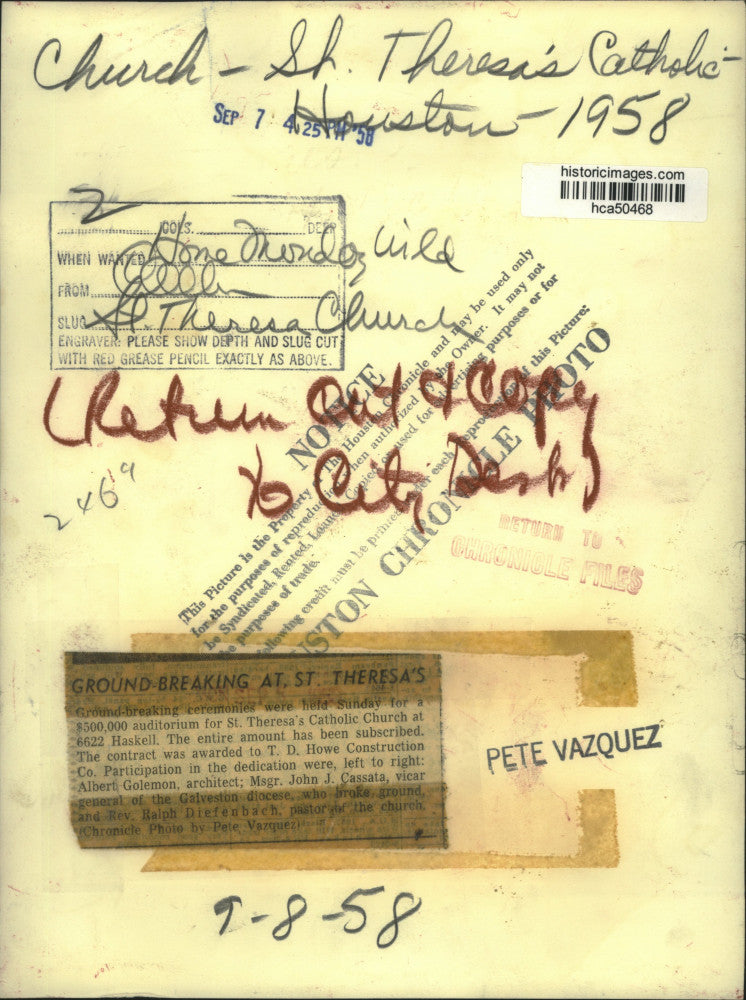 Church - St. Theresa's Catholic -
Houston - 1958
SEP 7 4 25 PM '58
historicimages.com
hca50468
2
COLS. DEEP
WHEN WANTED Home Monday
FROM
SLUG St Theresa Church
ENGRAVER: PLEASE SHOW DEPTH AND SLUG CUT
WITH RED GREASE PENCIL EXACTLY AS ABOVE.
NOTICE
This Picture is the Property of The Houston Chronicle and may be used only
for the purposes of reproduction when authorized by the Owner. It may not
be Syndicated, Rented, Loaned, Copied or used for advertising purposes or for
the purposes of trade.
following credit must be printed under each reproduction of this Picture:
HOUSTON CHRONICLE PHOTO
(Return Out & Copy
to City Desk)
2469
RETURN TO
CHRONICLE FILES
GROUND-BREAKING AT ST. THERESA'S
Ground-breaking ceremonies were held Sunday for a
$500,000 auditorium for St. Theresa's Catholic Church at
6622 Haskell. The entire amount has been subscribed.
The contract was awarded to T. D. Howe Construction
Co. Participation in the dedication were, left to right:
Albert Golemon, architect; Msgr. John J. Cassata, vicar
general of the Galveston diocese, who broke ground,
and Rev. Ralph Diefenbach, pastor of the church.
(Chronicle Photo by Pete Vazquez)
PETE VAZQUEZ
9-8-58